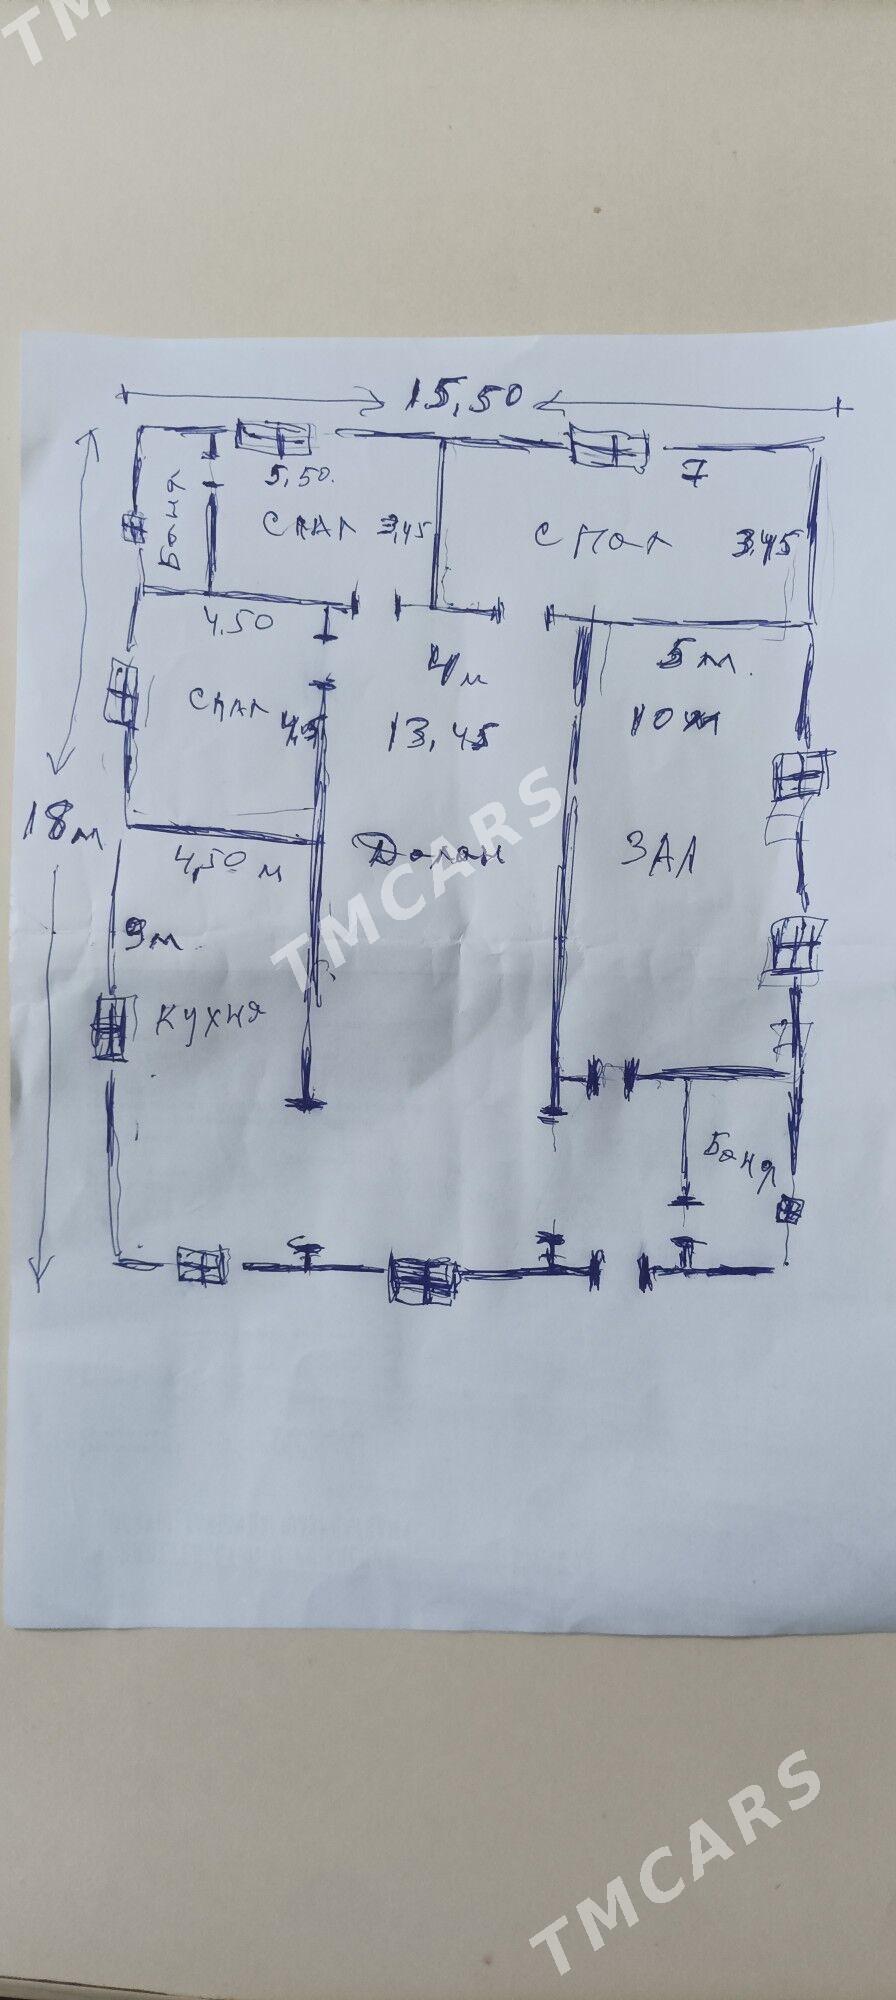 TM
15,50
Баня
5,50.
7
спал 3,45
спал
3,45
4,50
4м
5м.
спал
4,5
13,45
10м
18м
4,50м
Далан
ЗАЛ
TMCARS
9м
кухня
Баня
TMCARS